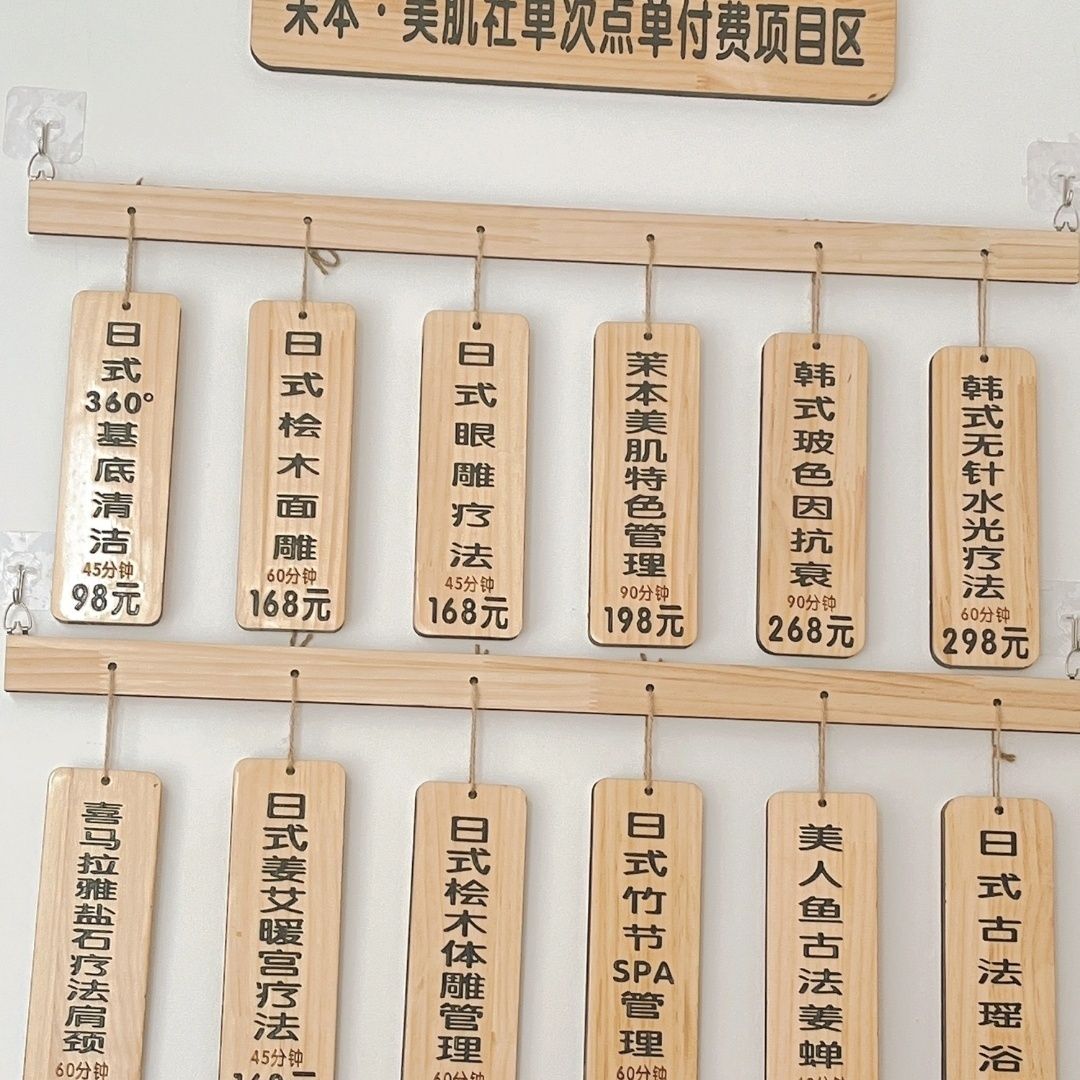 茉本·美肌社单次点单付费项目区
日式360°基底清洁
45分钟
98元
日式桧木面雕
60分钟
168元
日式眼雕疗法
45分钟
168元
茉本美肌特色管理
90分钟
198元
韩式玻色因抗衰
90分钟
268元
韩式无针水光疗法
60分钟
298元
喜马拉雅盐石疗法肩颈
60分钟
日式姜艾暖宫疗法
45分钟
168元
日式桧木体雕管理
60分钟
日式竹节SPA管理
60分钟
美人鱼古法姜蝉
日式古法瑶浴